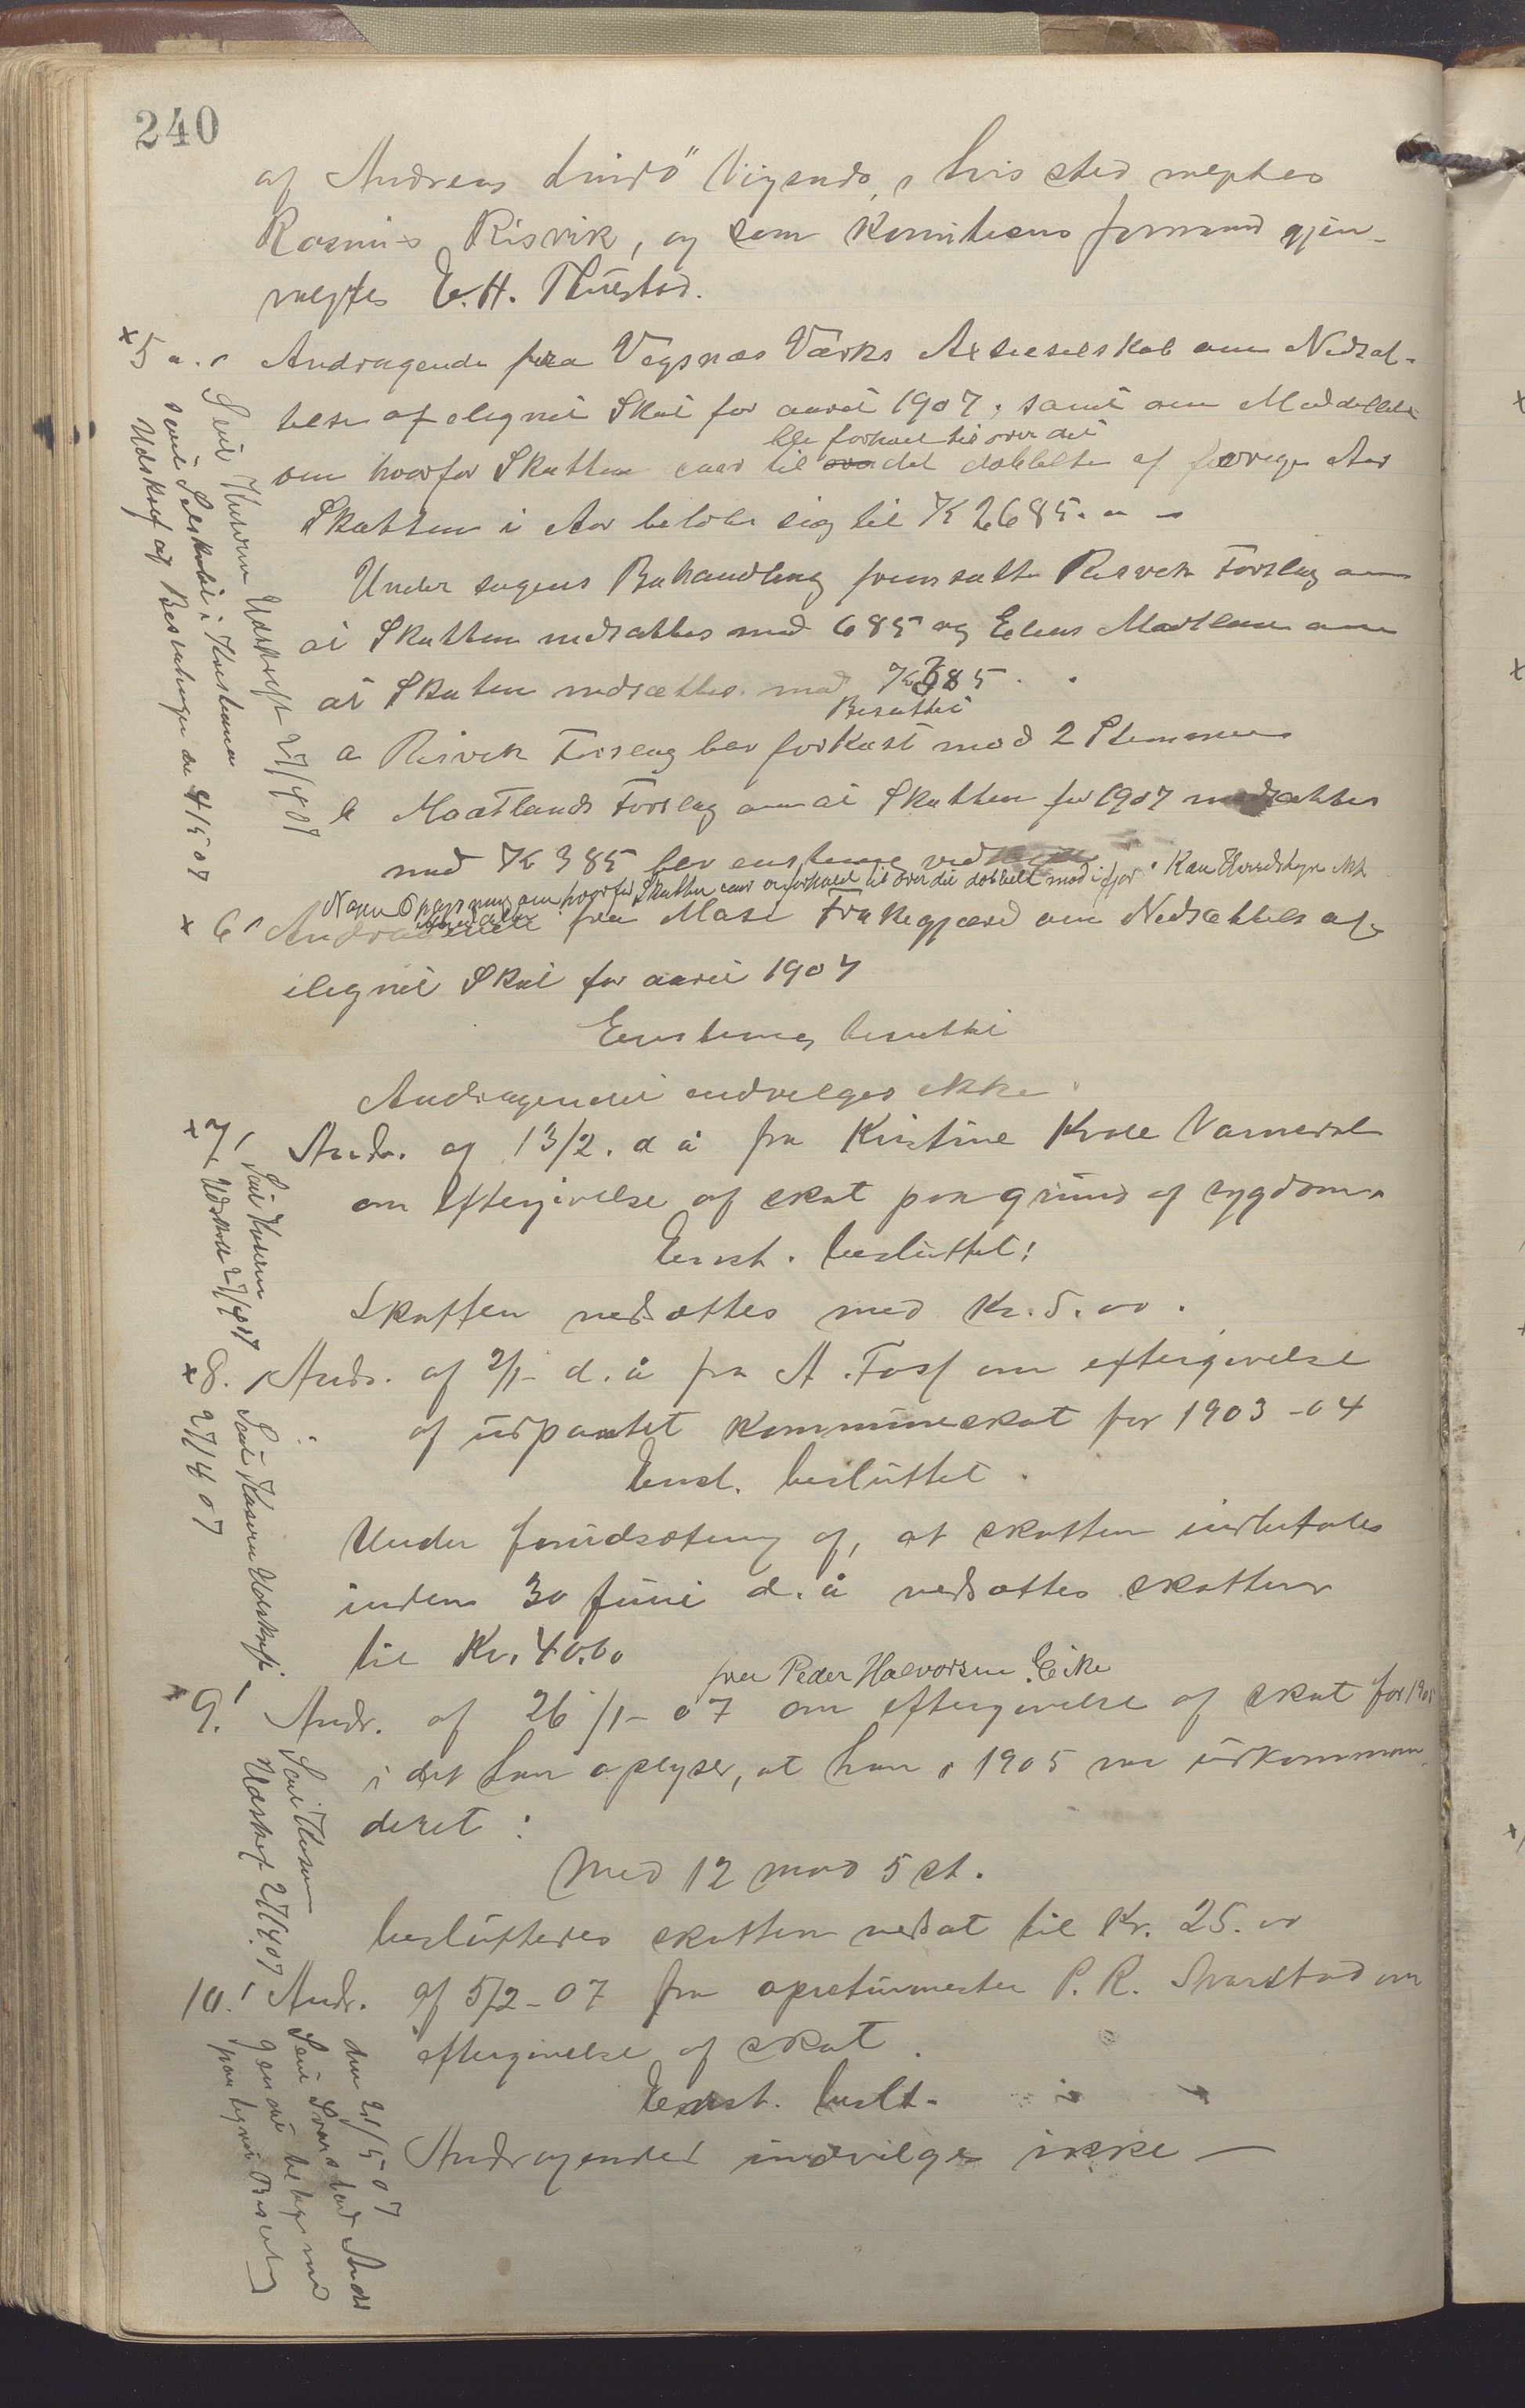 240
af Andreas Lindö Vigsnds, i hvis sted valgtes
Rasmus Risvik, og som Komiteens formand gjen-
valgtes E. H. Thuestad.
5 Andragende fra Vigsnæs Værks Aktieselskab om Nedsæt-
telse af ilegnet Skat for aaret 1907, samt om Meddelelse
ble forhøiet til over det
om hvorfor Skatten var til det dobbelte af forrige Aar
Skatten i Aar beløber sig til Kr 2685.
Under sagens Behandling fremsatte Risvik Forslag om
at Skatten nedsættes med 685 og Maatland om
at Skatten nedsættes med Kr 385
Besluttet
a Risvik Forslag blev forkast mod 2 Stemmer
b Maatlands Forslag om at Skatten for 1907 nedsættes
med Kr 385 blev enstemig
om hvorfor Skatten var forhøiet til over det dobbelt mod ifjor Kan Herredstyre ikke
6 Andragende fra Mase om Nedsættelse af
ilegnet Skat for aaret 1907
Enstemig besluttet
Andragendet indvilges ikke
7 Andr. af 13/2. d å fra Kristine Varnedal
om eftergivelse af skat paa grund af sygdom
Enst. besluttet:
Skatten nedsættes med Kr. 5.00.
8. Andr. af 2/1- d. å fra A. Foss om eftergivelse
af udpantet Kommuneskat for 1903-04
Enst. besluttet.
Under forudsætning af, at skatten indbetales
inden 30 Juni d. å nedsættes skatten
til Kr. 40.00
fra Peder Halvorsen Eike
9. Andr. af 26/1-07 om eftergivelse af skat for 1905
i det han oplyser, at han i 1905 var udkomman-
deret:
Med 12 mod 5 st.
besluttedes skatten nedsat til Kr. 25.00
10. Andr. af 5/2-07 fra opseturmester P. R. Svarstad om
eftergivelse af skat.
Enst. beslt.
Andragendet indvilges ikke –
Sent Kaseren Udskrift 27/4 07
samt Selskabet i Kristiania
Udskrift af Beslutningen den 4/5 07
Sent Kaseren
Udskrift 27/4 07
Sent Kaseren Udskrift
27/4 07
Sent Kaseren
Udskrift 27/4 07
den 21/5 07
Sent Svarstad Andr